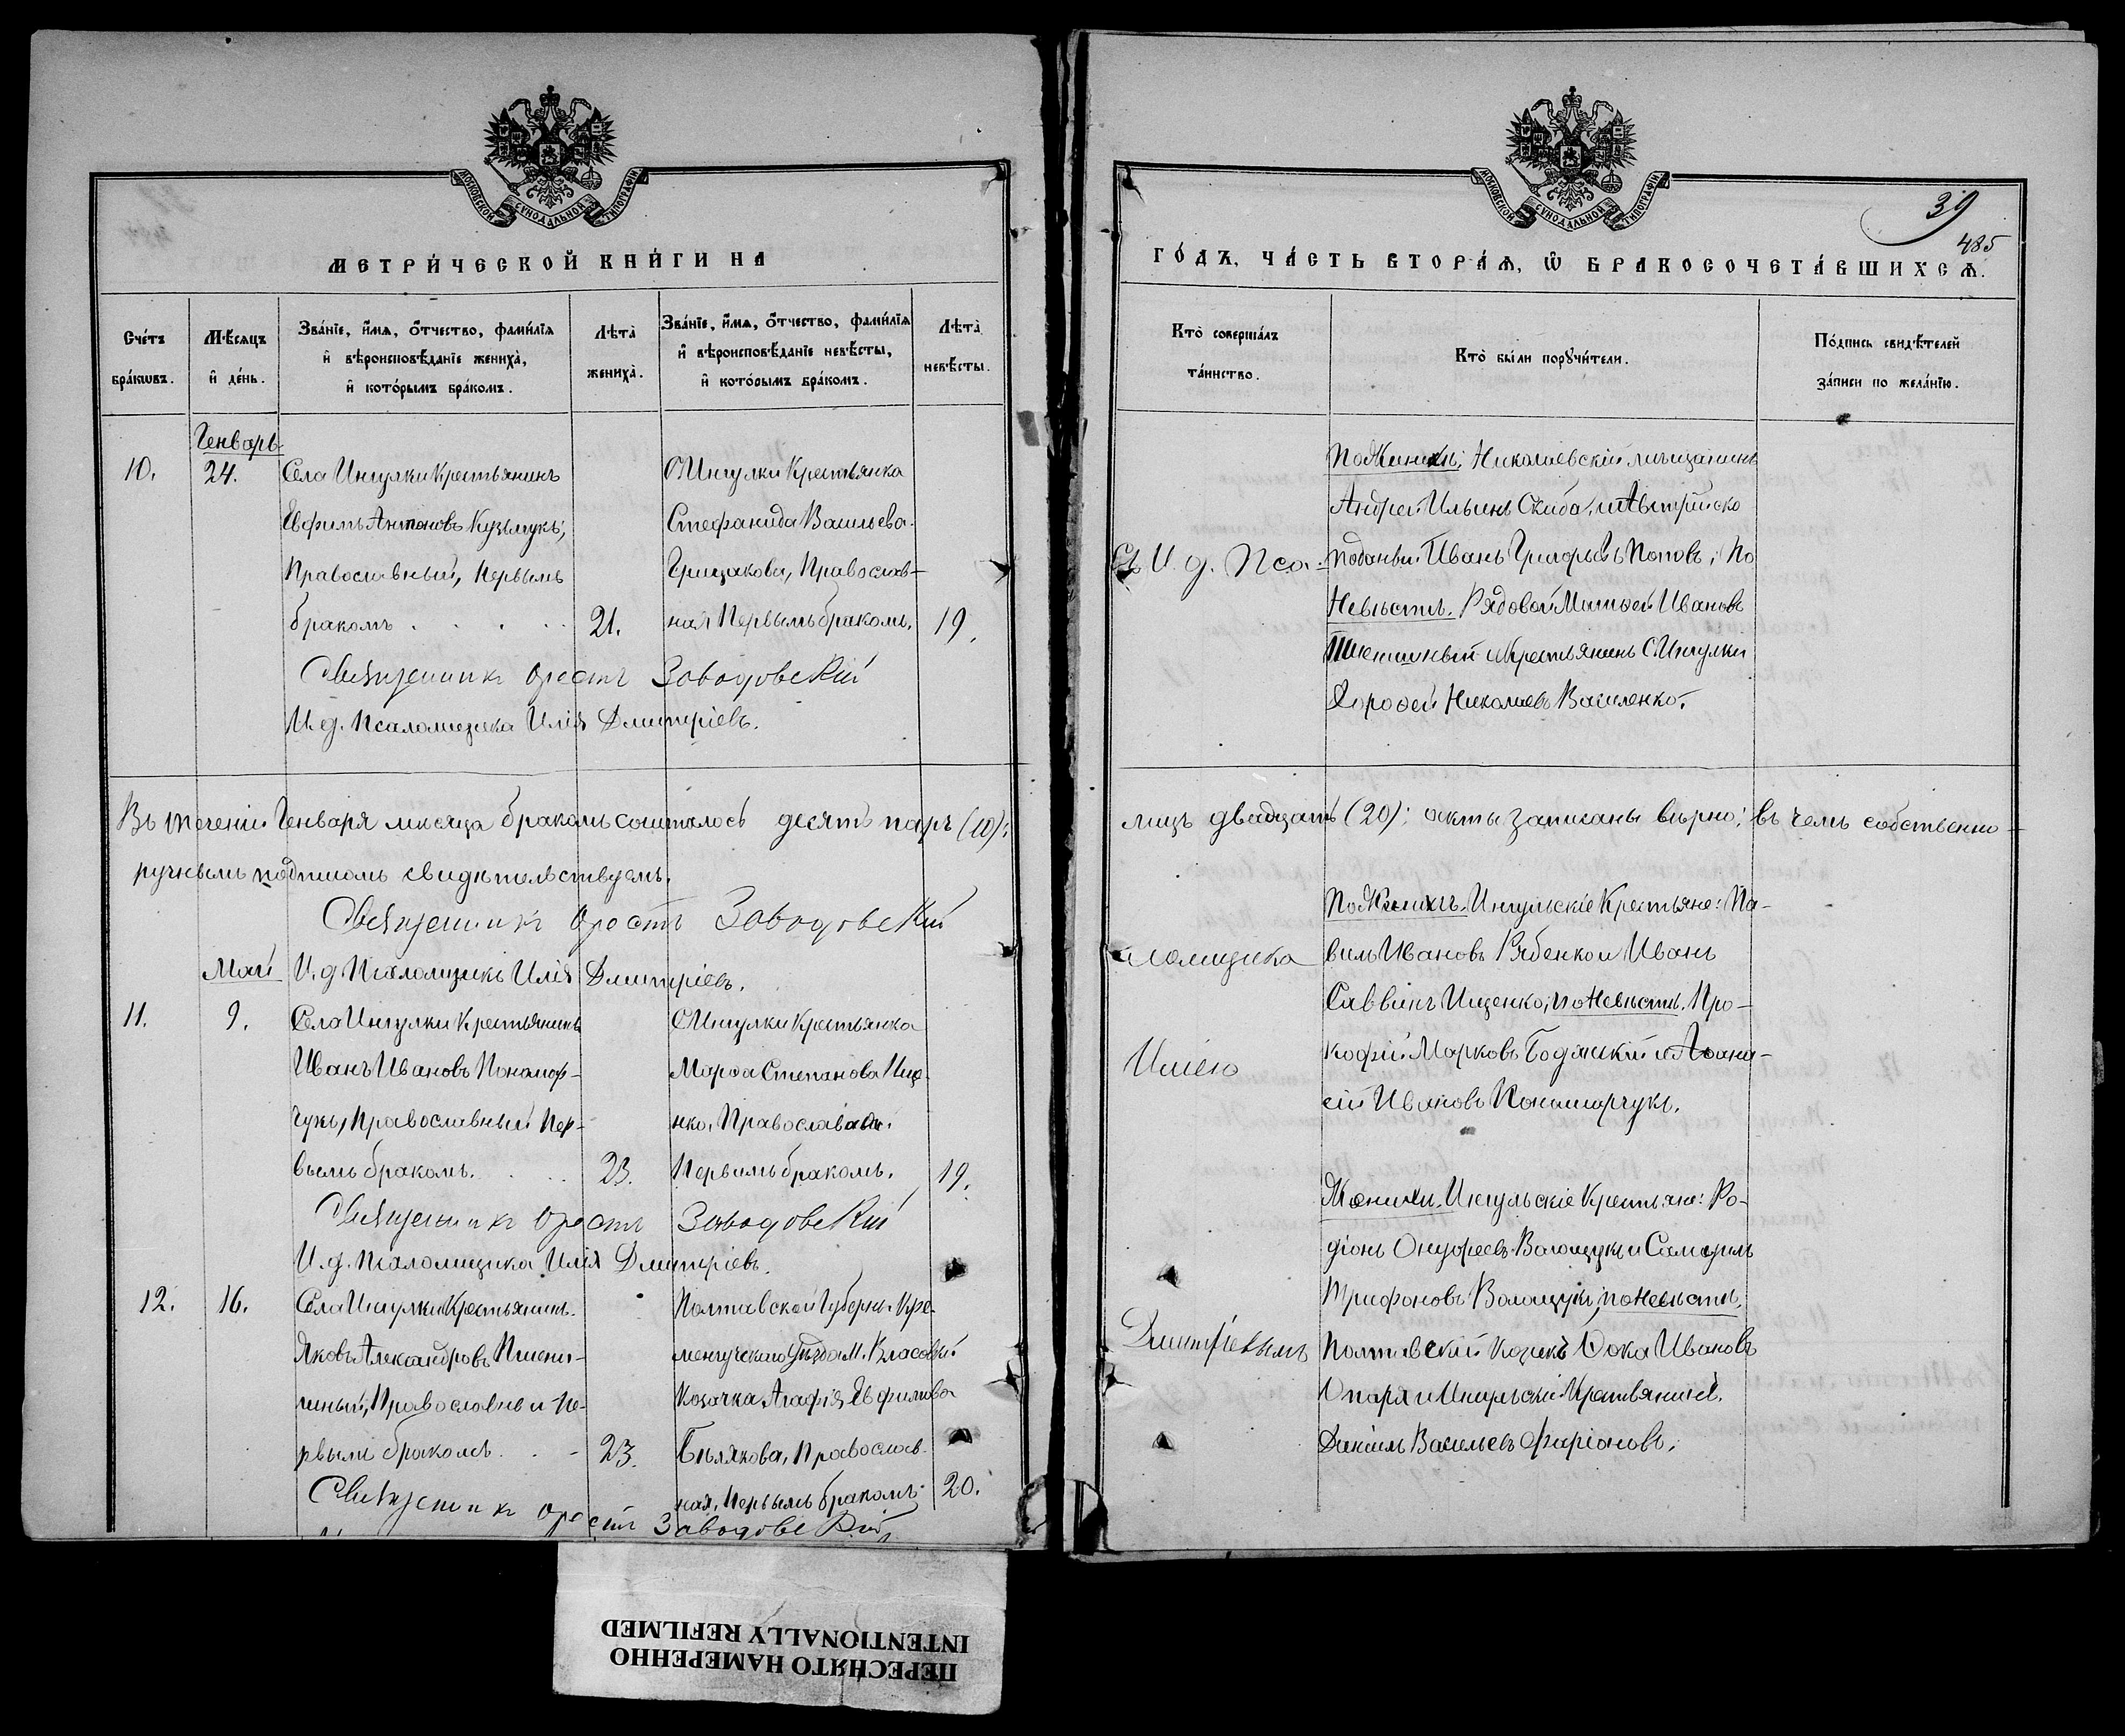 МОСКОВСКОЙ СѴНОДАЛЬНОЙ ТИПОГРАФІИ
МЕТРИ́ЧЕСКОЙ КНИ́ГИ НА
Сче́тъ бра́кѡвъ.
Мѣ́сяцъ и҆ де́нь.
Зва́нїе, и҆́мѧ, ѻ҆́тчество, фами́лїѧ
и҆ вѣроисповѣ́данїе жениха̀,
и҆ кото́рымъ бра́комъ.
Лѣта̀ жениха̀.
Зва́нїе, и҆́мѧ, ѻ҆́тчество, фами́лїѧ
и҆ вѣроисповѣ́данїе невѣ́сты,
и҆ кото́рымъ бра́комъ.
Лѣта̀ невѣ́сты.
Генварь
10.
24.
Села Ингулки Крестьянинъ
Евфимъ Антоновъ Кузьмукъ,
Православный, Первымъ
бракомъ . . . . .
21.
С. Ингулки Крестьянка
Стефанида Васильева
Грицакова, Православ-
ная Первымъ бракомъ.
19.
Священникъ Орестъ Заводовскій
И. д. Псаломщика Илія Дмитріевъ.
Въ теченіи Генваря мѣсяца бракомъ сочталось десять паръ (10);
ручнымъ подписомъ свидѣтельствуемъ.
Священникъ Орестъ Заводовскій
И. д Псаломщикъ Илія Дмитріевъ.
Май
11.
9.
Села Ингулки Крестьянинъ
Иванъ Ивановъ Пономар-
чукъ, Православный Пер-
вымъ бракомъ. . . .
23.
С Ингулки Крестьянка
Марѳа Степанова Ище-
нко, Православная
Первымъ бракомъ.
19.
Священникъ Орестъ Заводовскій
И. д. Псаломщика Илія Дмитріевъ.
12.
16.
Села Ингулки Крестьянинъ
Яковъ Александровъ Пшени-
шный, Православный Пе-
рвымъ бракомъ . . -
23.
Полтавской Губерніи Кре-
менчугскаго Уѣзда М. Власовки
Козачка Агафія Евфимова
Бѣлякова, Православ-
ная, Первымъ бракомъ.
20.
Священникъ Орестъ Заводовскій
МОСКОВСКОЙ СѴНОДАЛЬНОЙ ТИПОГРАФІИ
39
485
ГО́ДЪ, ЧА́СТЬ ВТОРА́Ѧ, Ѽ БРАКОСОЧЕТА́ВШИХСѦ.
Кто̀ соверша́лъ
та́инство.
Кто̀ бы́ли порꙋчи́тели.
По́дпись свидѣ́телей
за́писи по жела́нїю.
По Женихѣ: Николаевскій мѣщанинъ
Андрей Ильинъ Скиба, и Австрійско
Съ И. д. Пса-
поданый Иванъ Григорьевъ Поповъ; По
Невѣстѣ. Рядовой Матѳей Ивановъ
Пшеничный и Крестьянинъ С Ингулки
Дороѳей Николаевъ Василенко.
лицъ двадцать (20); акты записаны вѣрно; въ чемъ собственно-
По Женихѣ. Ингульскіе Крестьяне: Па-
ломщика
велъ Ивановъ Рябенко и Иванъ
Саввинъ Ищенко, по Невѣстѣ. Про-
Иліею
кофій Марковъ Бодянскій и Аѳана-
сій Ивановъ Пономарчукъ.
Женихѣ. Ингульскіе Крестьяне: Ро-
діонъ Онуфреевъ Волощукъ и Самуилъ
Трифоновъ Волощукъ, по Невѣстѣ.
Дмитріевымъ
Полтавскій Козакъ Ѳока Ивановъ
Опаря и Ингульскій Крестьянинъ
Даніилъ Васильевъ Фиріоновъ.
ПЕРЕСНЯТО НАМЕРЕННО
INTENTIONALLY REFILMED